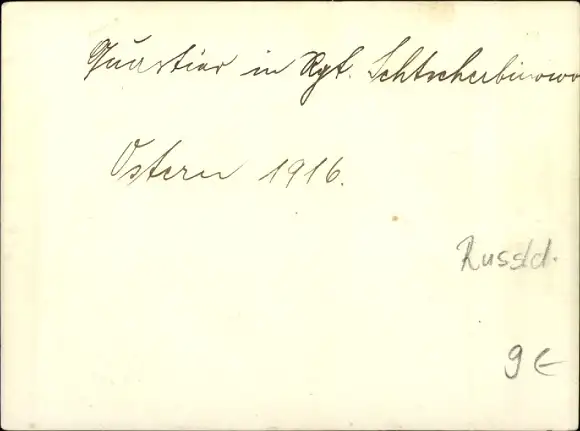 Quartier in Rgt. Schtscherbinowo
Ostern 1916.
Russld.
9 €